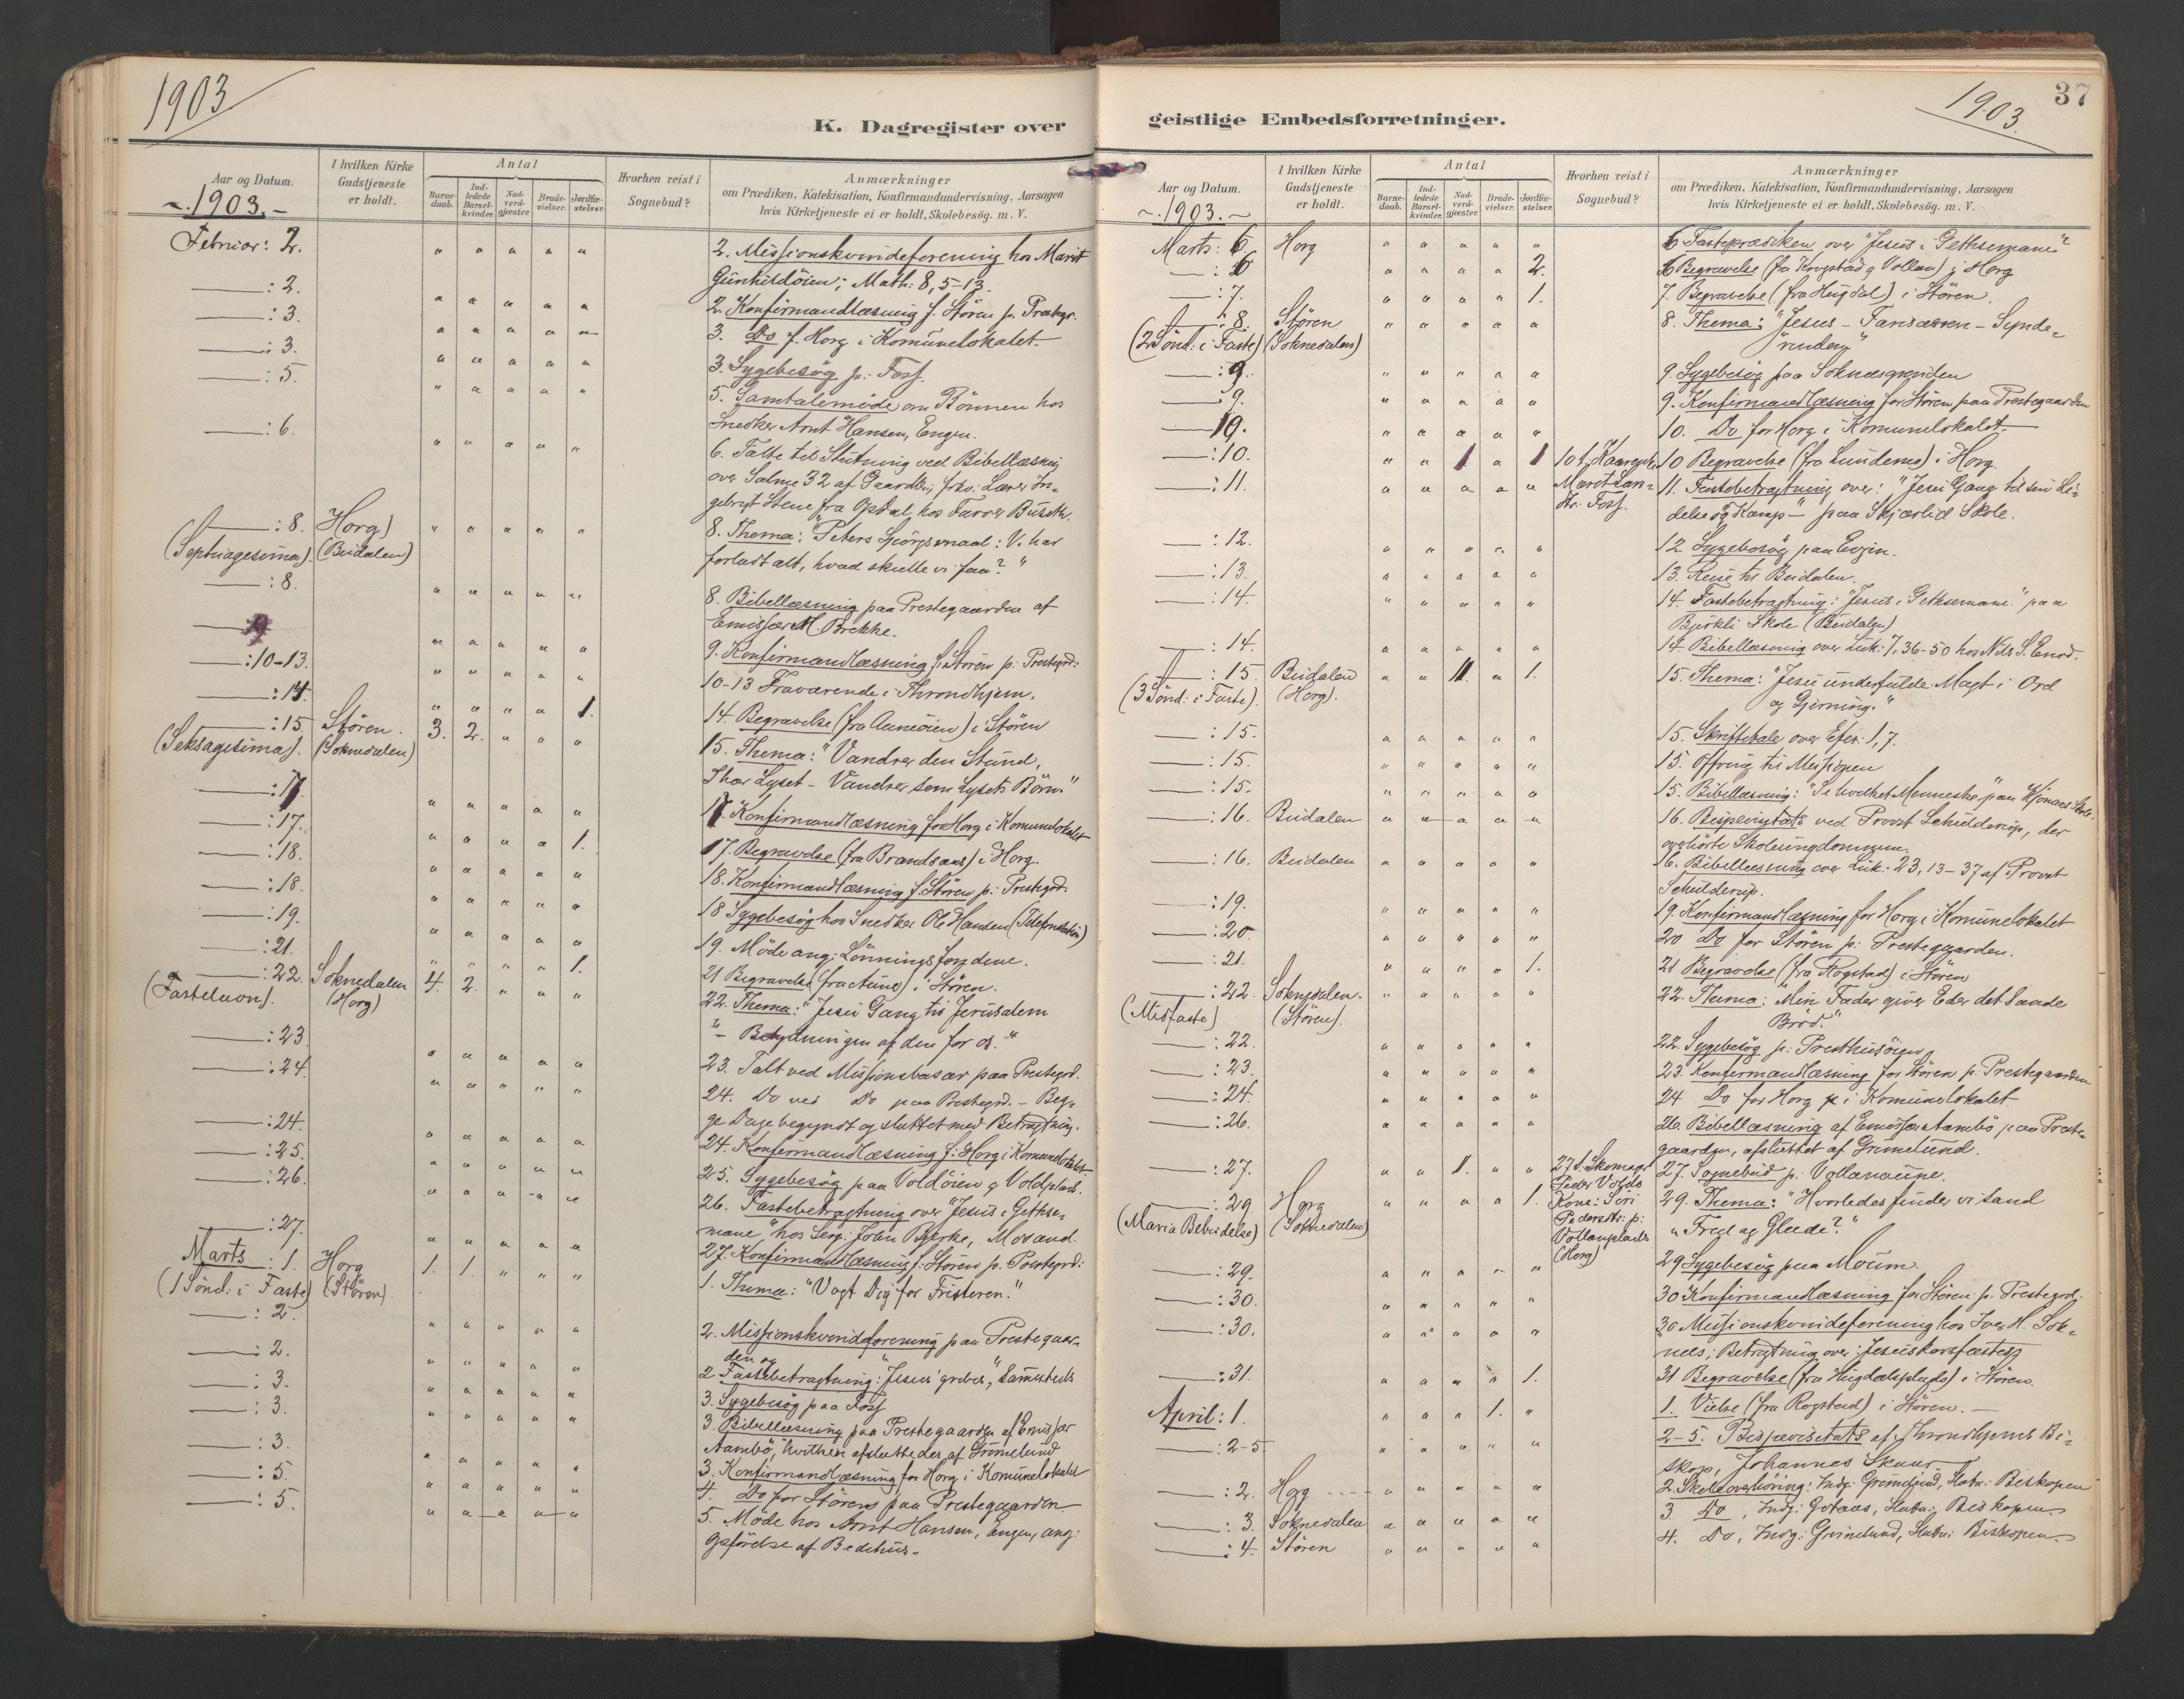 1903
K. Dagregister over
Aar og Datum.
I hvilken Kirke
Gudstjeneste
er holdt.
Antal
Barne-
daab.
Ind-
ledede
Barsel-
kvinder.
Nad-
verd-
gjester.
Brude-
vielser.
Jordfæ-
stelser.
Hvorhen reist i
Sognebud?
Anmærkninger
om Prædiken, Katekisation, Konfirmandundervisning, Aarsagen
hvis Kirketjeneste ei er holdt, Skolebesög. m. V.
1903.
Februar: 2. " " " " "
2. Missionskvindeforening hos Marit
Gunhildöien; Math: 8, 5-13.
: 2. " " " " "
2. Konfirmandlæsning f. Stören p. Prestegr.
: 3. " " " " "
3. Do f. Horg i Komunelokalet.
: 3. " " " " "
3. Sygebesög p. Foss.
: 5. " " " " "
5. Samtalemöde om Bönnen hos
Snedker Arnt Hansen, Engen.
: 6. " " " " "
6. Talte til Slutning ved Bibellæsning
over Salme 32 af Gaardbr; frhv: Lærer In-
gebrigt Stene fra Opdal, hos Farver Buseth.
: 8. Horg) " " " " "
(Septuagesima). (Budalen)
8. Thema: "Peters Spörgsmaal: Vi har
forladt alt, hvad skulle vi faa?"
: 8. " " " " "
8. Bibellæsning paa Prestegaarden af
Emissær M. Brekke.
9 " " " " "
9. Konfirmandlæsning f. Stören p. Prestegrd:
: 10-13. " " " " "
10-13 Fraværende i Throndhjem.
: 14. " " " " 1.
14. Begravelse (fra Aunöien) i Stören
: 15. Stören. 3. 2. " " "
(Seksagesima). (Soknedalen)
15. Thema: "Vandrer den Stund,
I har Lyset - Vandrer som Lysets Börn."
: 17. " " " " "
17. Konfirmandlæsning for Horg i Komunelokalet
: 17. " " " " 1.
17. Begravelse (fra Brandsaas) i Horg.
: 18. " " " " "
18. Konfirmandlæsning f. Stören p. Prestegrd.
: 18. " " " " "
18 Sygebesög hos Snedker Ole Hansen (Telefonstation)
: 19. " " " " "
19. Möde ang: Lönningsfordene.
: 21. " " " " 1.
21 Begravelse (fra Aune) i Stören.
: 22. Soknedalen 4. 2. " " "
(Fastelavn). (Horg)
22. Thema: "Jesu Gang til Jerusalem
" - Betydningen af den for os."
: 23. " " " " "
23. Talt ved Missionsbasar paa Prestegrd.
: 24. " " " " "
24. Do ved Do paa Prestegrd. - Beg-
ge Dage begyndt og sluttet med Betragtning.
: 24. " " " " "
24. Konfirmandlæsning f: Horg i Komunelokalet
: 25. " " " " "
25. Sygebesög paa Voldöien og Voldplads.
: 26. " " " " "
26. Fastebetragtning over "Jesus i Gethse-
mane", hos Serg: John Bjerke, Mosand.
: 27. " " " " "
27. Konfirmandlæsning f: Stören p. Prestegrd:
Marts : 1. Horg 1. 1. " " "
(1 Sönd: i Faste) (Stören).
1. Thema: "Vogt Dig for Fristeren."
: 2. " " " " "
2. Missionskvindeforening paa Prestegaar-
den og
: 2. " " " " "
2 Fastebetragtning: "Jesus' gribes", sammesteds
: 3. " " " " "
3. Sygebesög paa Foss
: 3. " " " " "
3 Bibellæsning paa Prestegaarden af Emissær
Aambö, hvilken afsluttedes af Grimelund
: 3. " " " " "
3. Konfirmandlæsning for Horg i Komunelokalet
: 5. " " " " "
4. Do for Stören paa Prestegaarden
: 5. " " " " "
5. Möde hos Arnt Hansen, Engen, ang:
Opförelse af Bedehus.
1903.
37
geistlige Embedsforretninger.
Aar og Datum.
I hvilken Kirke
Gudstjeneste
er holdt.
Antal
Barne-
daab.
Ind-
ledede
Barsel-
kvinder.
Nad-
verd-
gjester.
Brude-
vielser.
Jordfæ-
stelser.
Hvorhen reist i
Sognebud?
Anmærkninger
om Prædiken, Katekisation, Konfirmandundervisning, Aarsagen
hvis Kirketjeneste ei er holdt, Skolebesög. m. V.
1903.
Marts: 6. Horg " " " " "
6. Fasteprædiken over "Jesus i Gethsemane"
: 6 " " " " 2.
6 Begravelse (fra Krogstad og Vollan) i Horg
: 7. " " " " 1.
7. Begravelse (fra Hugdal) i Stören.
: 8. Stören " " " " "
(2 Sönd: i Faste) (Soknedalen)
8. Thema: "Jesus - Farisæeren - Synde-
rinden"
: 9. " " " " "
9 Sygebesög paa Soknæsgrenden
: 9. " " " " "
9. Konfirmandlæsning for Stören paa Prestegaarden
10. " " " " "
10. Do for Horg i Komunelokalet.
: 10. " " 1 " 1
10 Begravelse (fra Lundemo) i Horg.
: 11. " " " " "
Foss.
11. Fastebetragtning over: "Jesu Gang til sin Li-
delse og Kamp" - paa Skjærlid Skole.
: 12. " " " " "
12 Sygebesög paa Evjen.
: 13. " " " " "
13. Reise til Budalen.
: 14. " " " " "
14. Fastebetragtning: "Jesus i Gethsemane" paa
Bjerkli Skole (Budalen)
: 14. " " " " "
14 Bibellæsning over Luk: 7, 36-50 hos Nils S. Enod.
: 15. Budalen " " 11. " 1.
(3 Sönd: i Faste). (Horg).
15. Thema: "Jesu underfulde Magt i Ord
og Gjerning."
: 15. " " " " "
15. Skriftetale over Efes: 1, 7.
: 15. " " " " "
15. Offring til Missionen
: 15. " " " " "
15. Bibellæsning: "Se hvilket Menneske" paa Kjönaas Skole.
: 16. Budalen " " " " "
16. Bispevisitats ved Provst Schilderup, der
overhörte Skoleungdommen.
: 16. Budalen " " " " "
16. Bibellæsning over Luk: 23, 13-37 af Provst
Schilderup.
: 19. " " " " "
19. Konfirmandlæsning for Horg i Komunelokalet
: 20 " " " " "
20 Do for Stören p. Prestegaarden.
: 21. " " " " 1.
21 Begravelse (fra Rogstad) i Stören
: 22. Soknedalen. " " " " "
(Midfaste) (Stören).
22. Thema: "Min Fader giver Eder det sande
Bröd."
: 22. " " " " "
22. Sygebesög p. Presthusöien
: 23. " " " " "
23. Konfirmandlæsning for Stören p. Prestegaarden
: 24. " " " " "
24 Do for Horg i Komunelokalet
: 26. " " " " "
26 Bibellæsning af Emissær Aambö paa Preste-
gaarden, afsluttet af Grimelund.
: 27. " " 1. " "
27 t. Skomag.
Peder Volds
Kone: Siri
Pedersdtr: p:
Vollanplads
(Horg)
27. Sognebud p. Vollanaune.
: 29 Horg " " " " 1.
(Maria Bebudelse) (Soknedalen)
29. Thema: "Hvorledes finder vi sand
"Fred og Glæde?"
: 29. " " " " "
29 Sygebesög paa Moum.
: 30. " " " " "
30 Konfirmandlæsning for Stören p. Prestegrd.
: 30. " " " " "
30 Missionskvindeforening hos Iver H. Sok-
næs; Betragtning over: Jesus korsfæstes
: 31. " " " " 1.
31 Begravelse (fra Hugdalsplads) i Stören.
April: 1. " " " 1. "
1. Vielse (fra Rogstad) i Stören. -
: 2-5. " " " " "
2-5. Bispevisitats af Throndhjems Bi-
skop, Johannes Skaar
: 2. Horg " " " " "
2. Skoleoverhöring: Indg: Grimelund, Slutn: Biskopen
: 3. Soknedalen " " " " "
3. Do, Indg: Gotaas, Slutn: Biskopen
: 4. Stören " " " " "
4. Do, Indg: Grimelund, Slutn: Biskopen